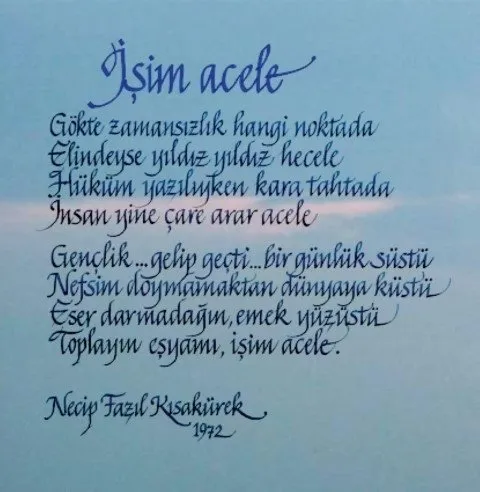 İşim acele
Gökte zamansızlık hangi noktada
Elindeyse yıldız yıldız hecele
Hüküm yazılıyken kara tahtada
İnsan yine çare arar acele
Gençlik...gelip geçti...bir günlük süstü
Nefsim doymamaktan dünyaya küstü
Eser darmadağın, emek yüzüstü
Toplayın eşyamı, işim acele.
Necip Fazıl Kısakürek
1972